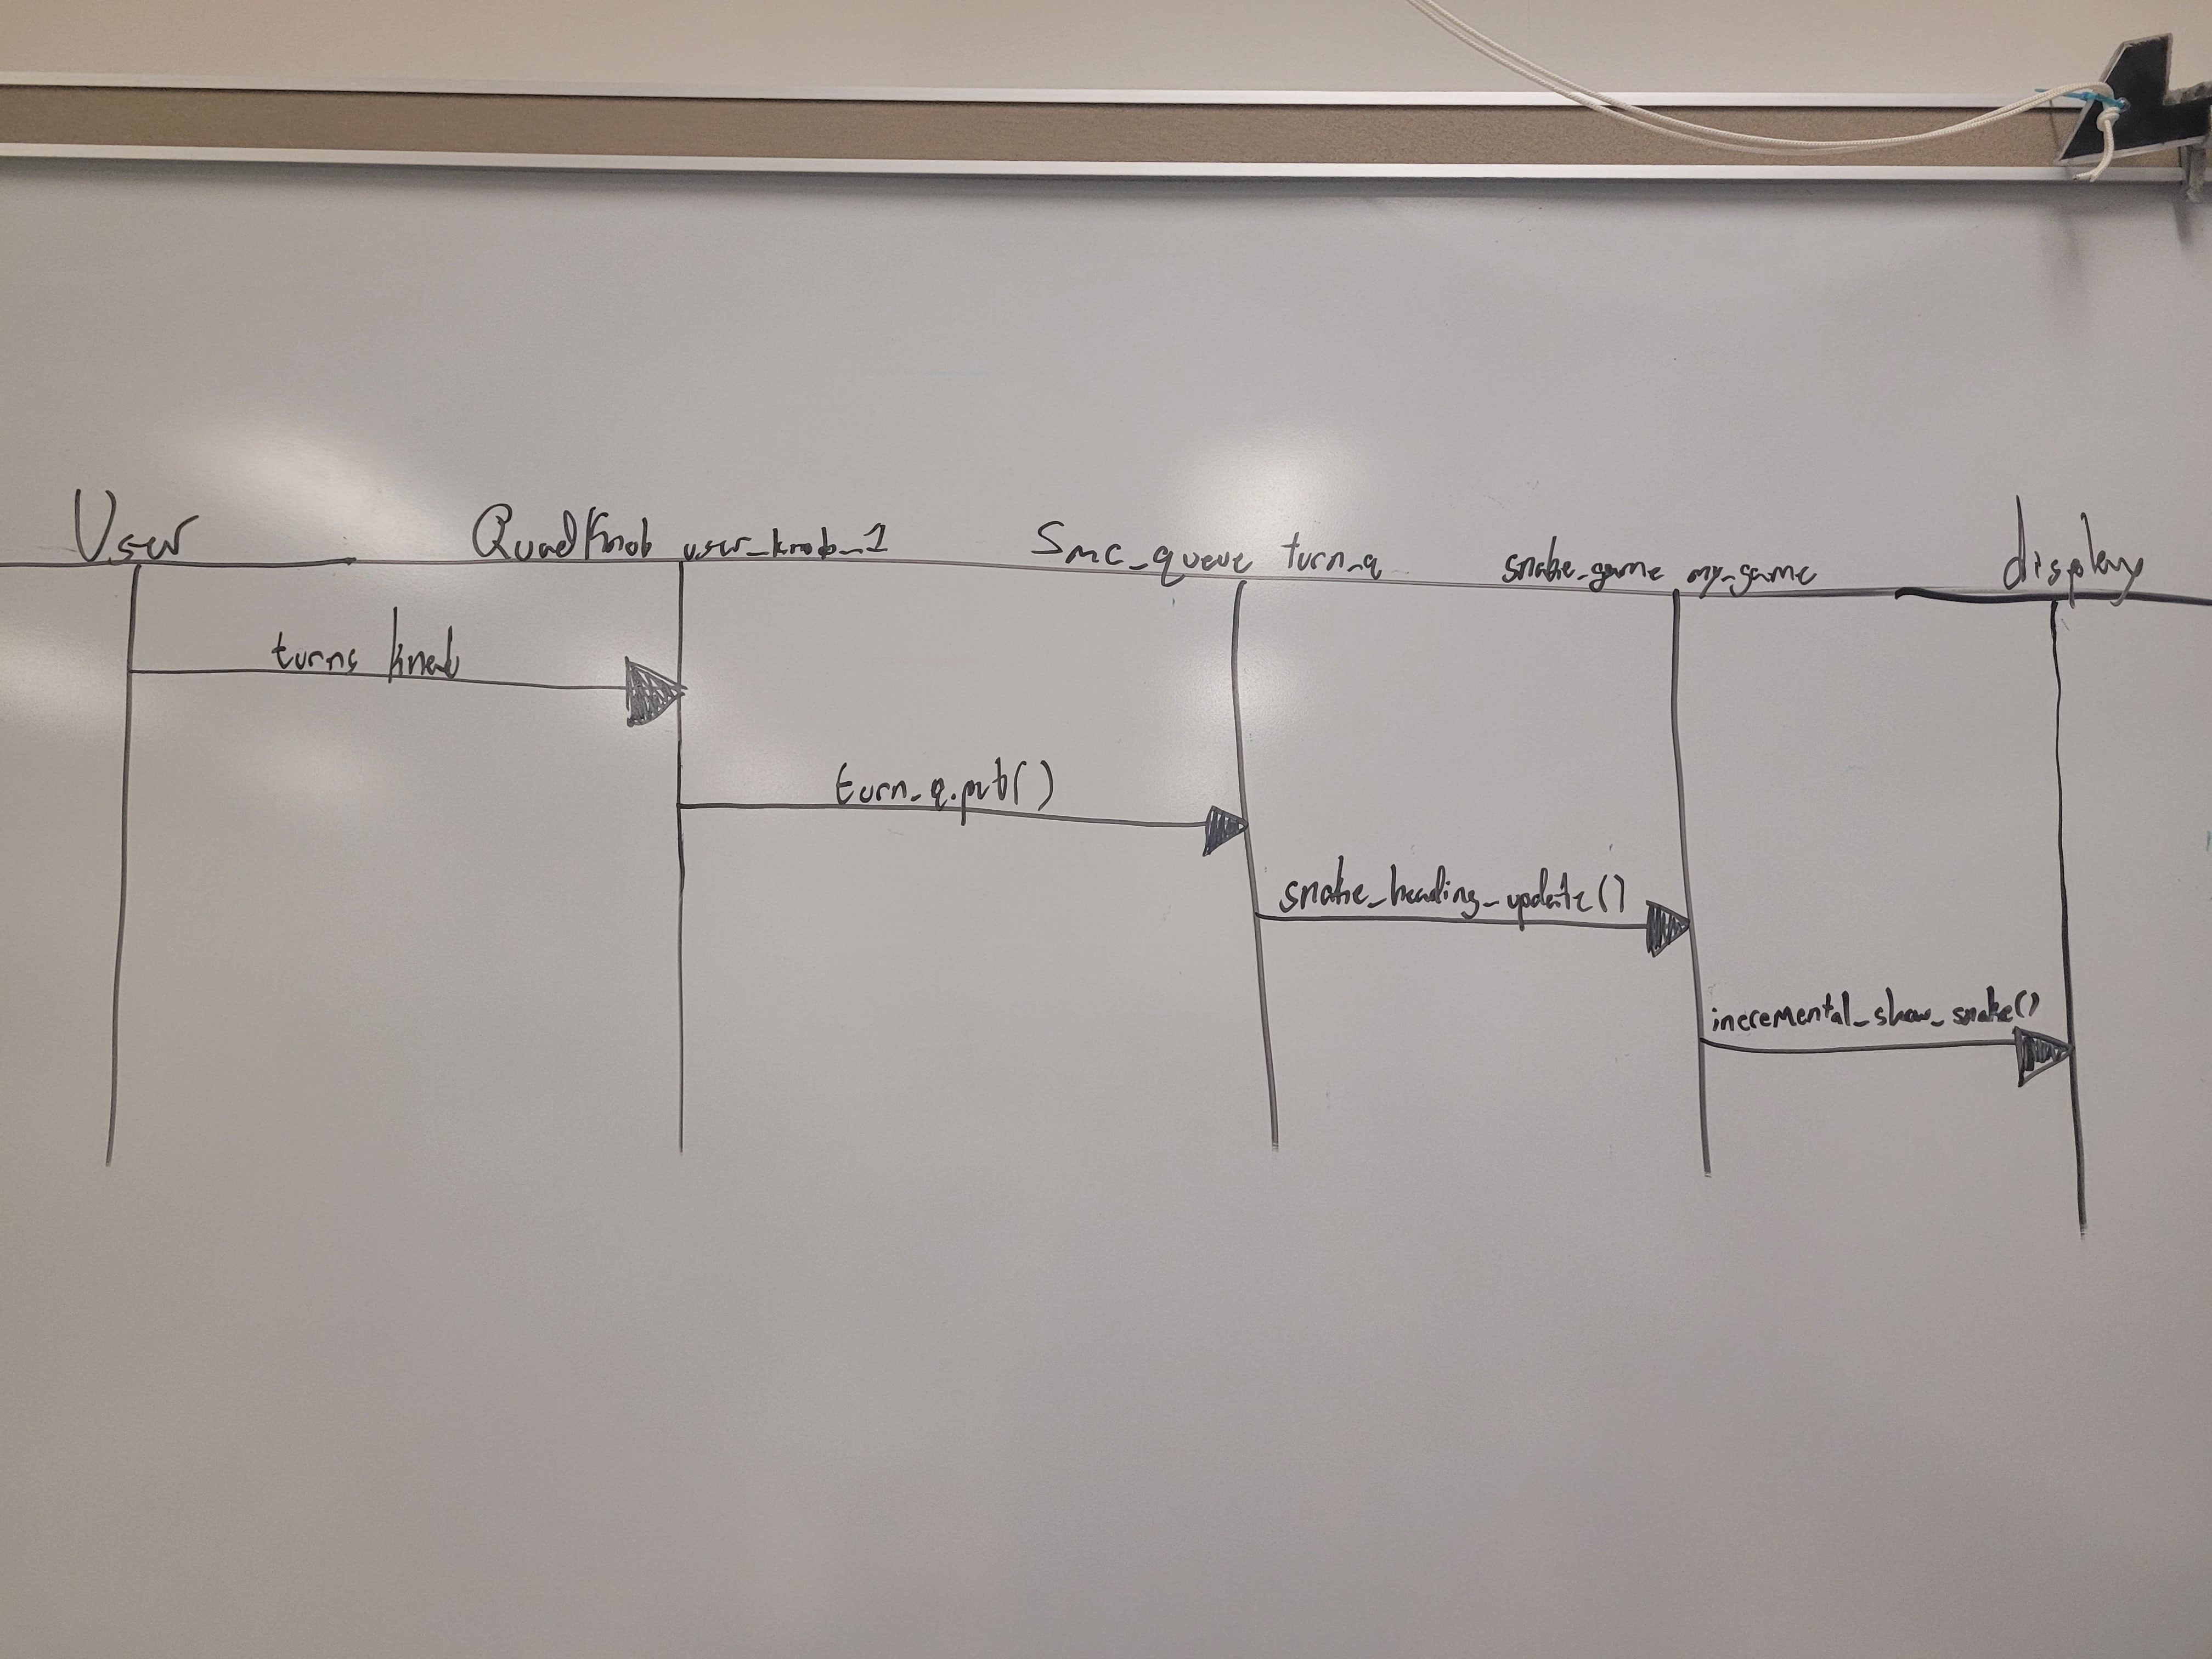 User QuadKnob user_knob_1 Smc_queue turn_q snake_game my_game display
turns knob
turn_q.put()
snake_heading_update()
incremental_show_snake()